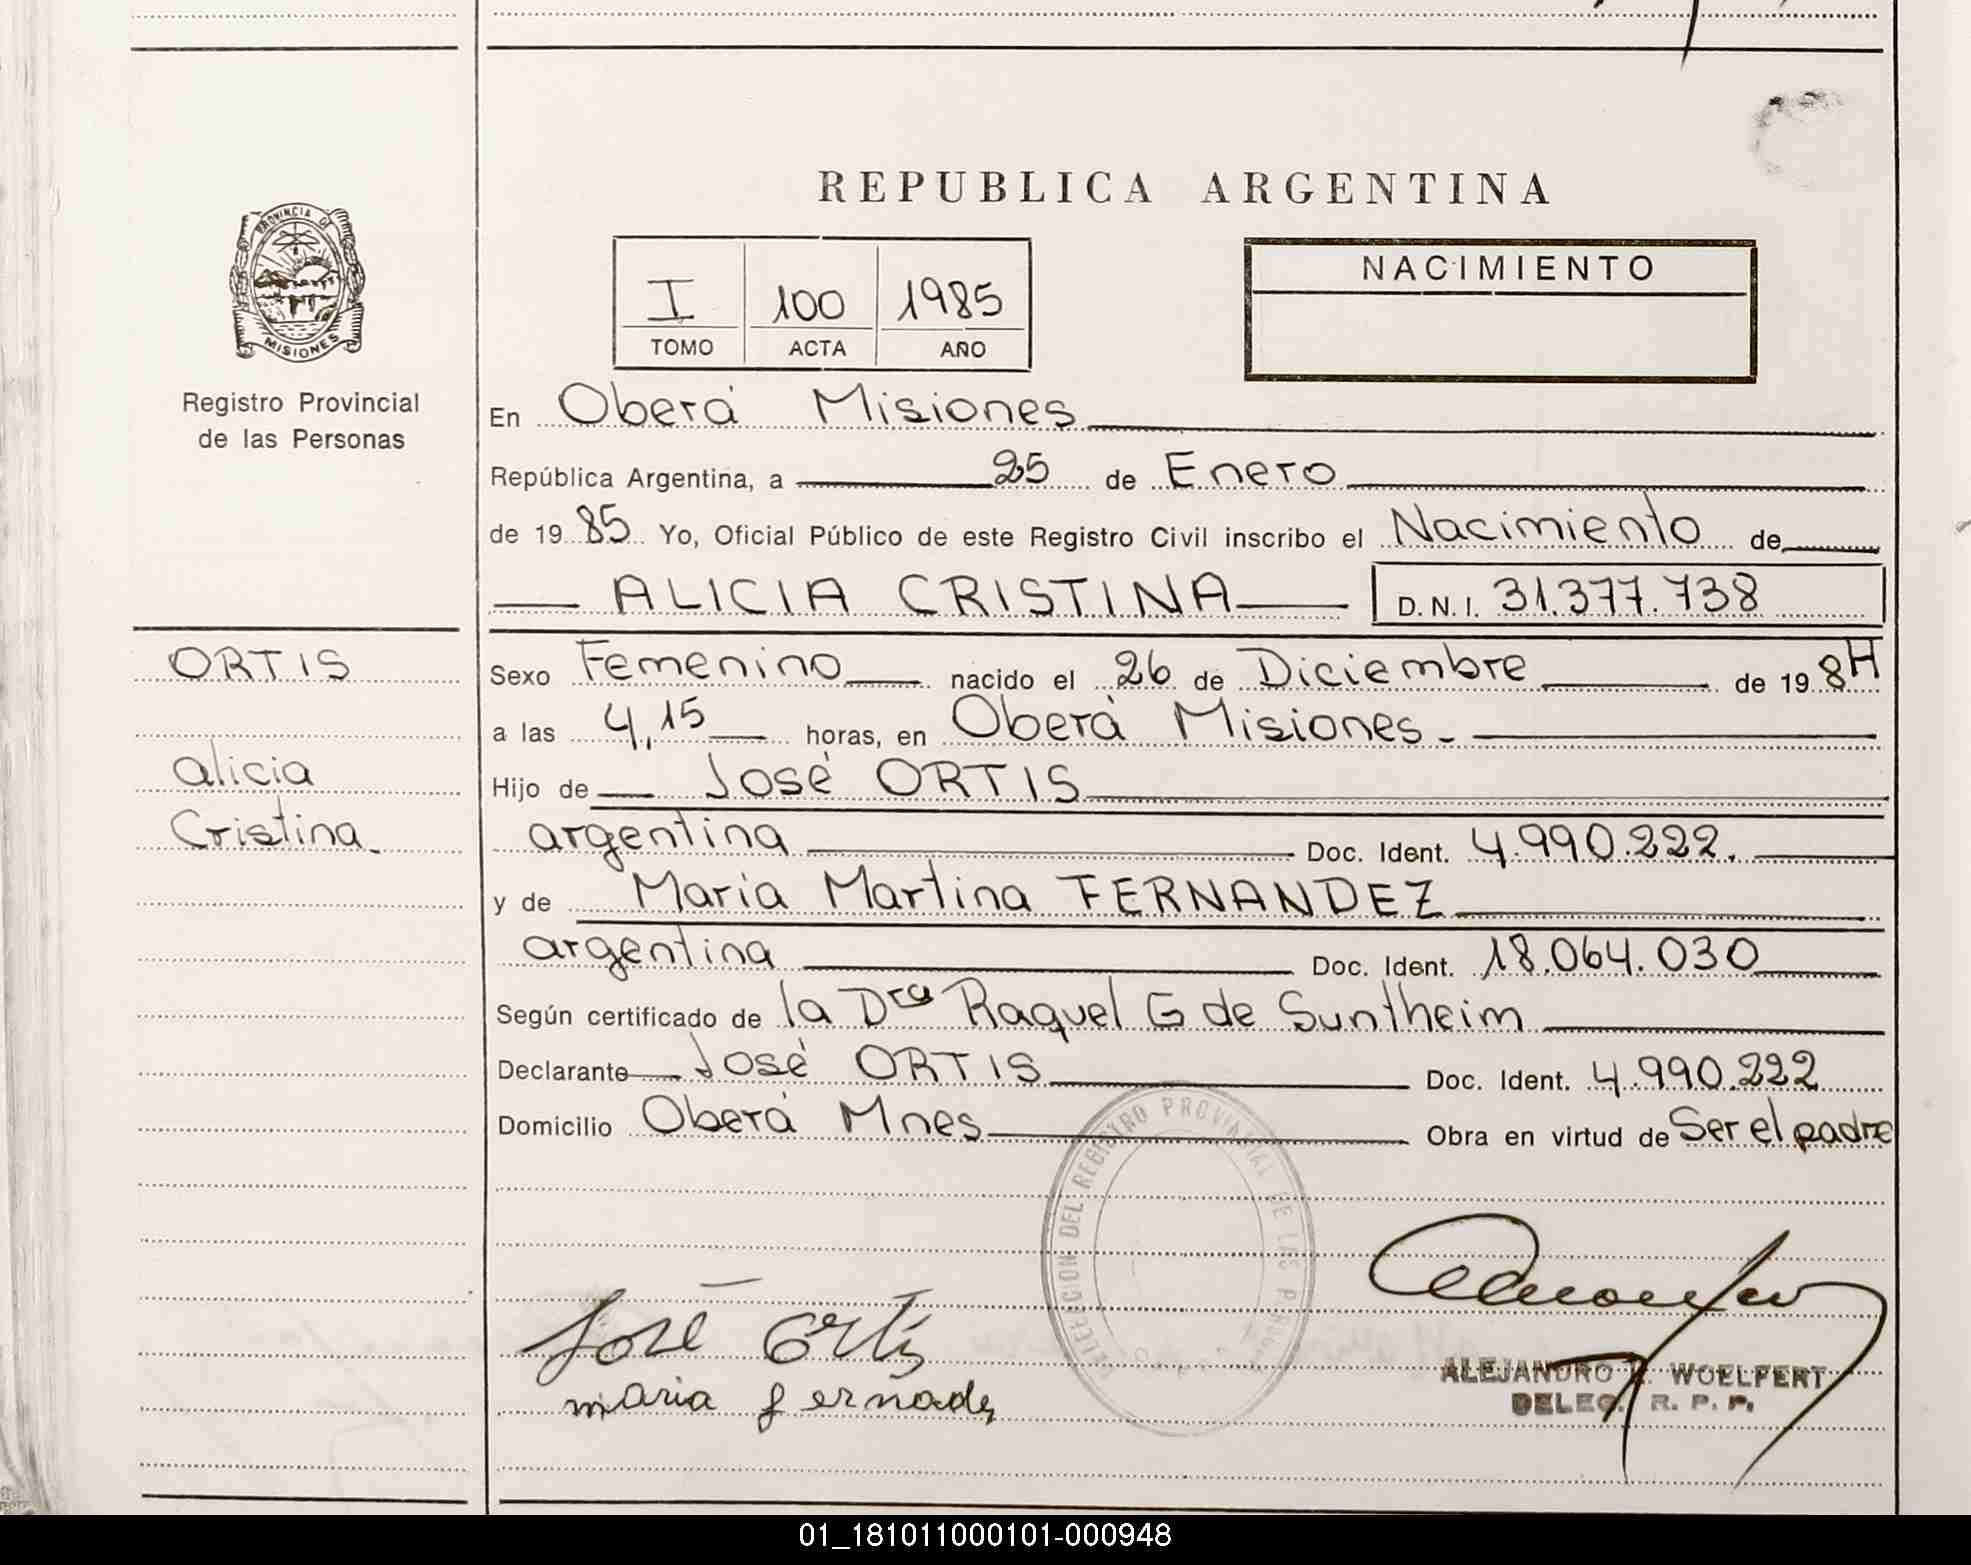 REPUBLICA ARGENTINA
PROVINCIA DE
MISIONES
Registro Provincial
de las Personas
I 100 1985
TOMO ACTA AÑO
NACIMIENTO
En Oberá Misiones
República Argentina, a 25 de Enero
de 19 85 Yo, Oficial Público de este Registro Civil inscribo el Nacimiento de
ALICIA CRISTINA D.N.I. 31.377.738
ORTIS
alicia
Cristina
Sexo Femenino nacido el 26 de Diciembre de 19 84
a las 4,15 horas, en Oberá Misiones.
Hijo de José ORTIS
argentina Doc. Ident. 4.990.222.
y de Maria Martina FERNANDEZ
argentina Doc. Ident. 18.064.030
Según certificado de la Dra Raquel G de Suntheim
Declarante José ORTIS Doc. Ident. 4.990.222
Domicilio Oberá Mnes Obra en virtud de Ser el padre
DEL REGISTRO PROVINCIAL DE LAS
José Ortis
maria fernades
ALEJANDRO WOELFERT
DELEG. R. P. P.
01_181011000101-000948